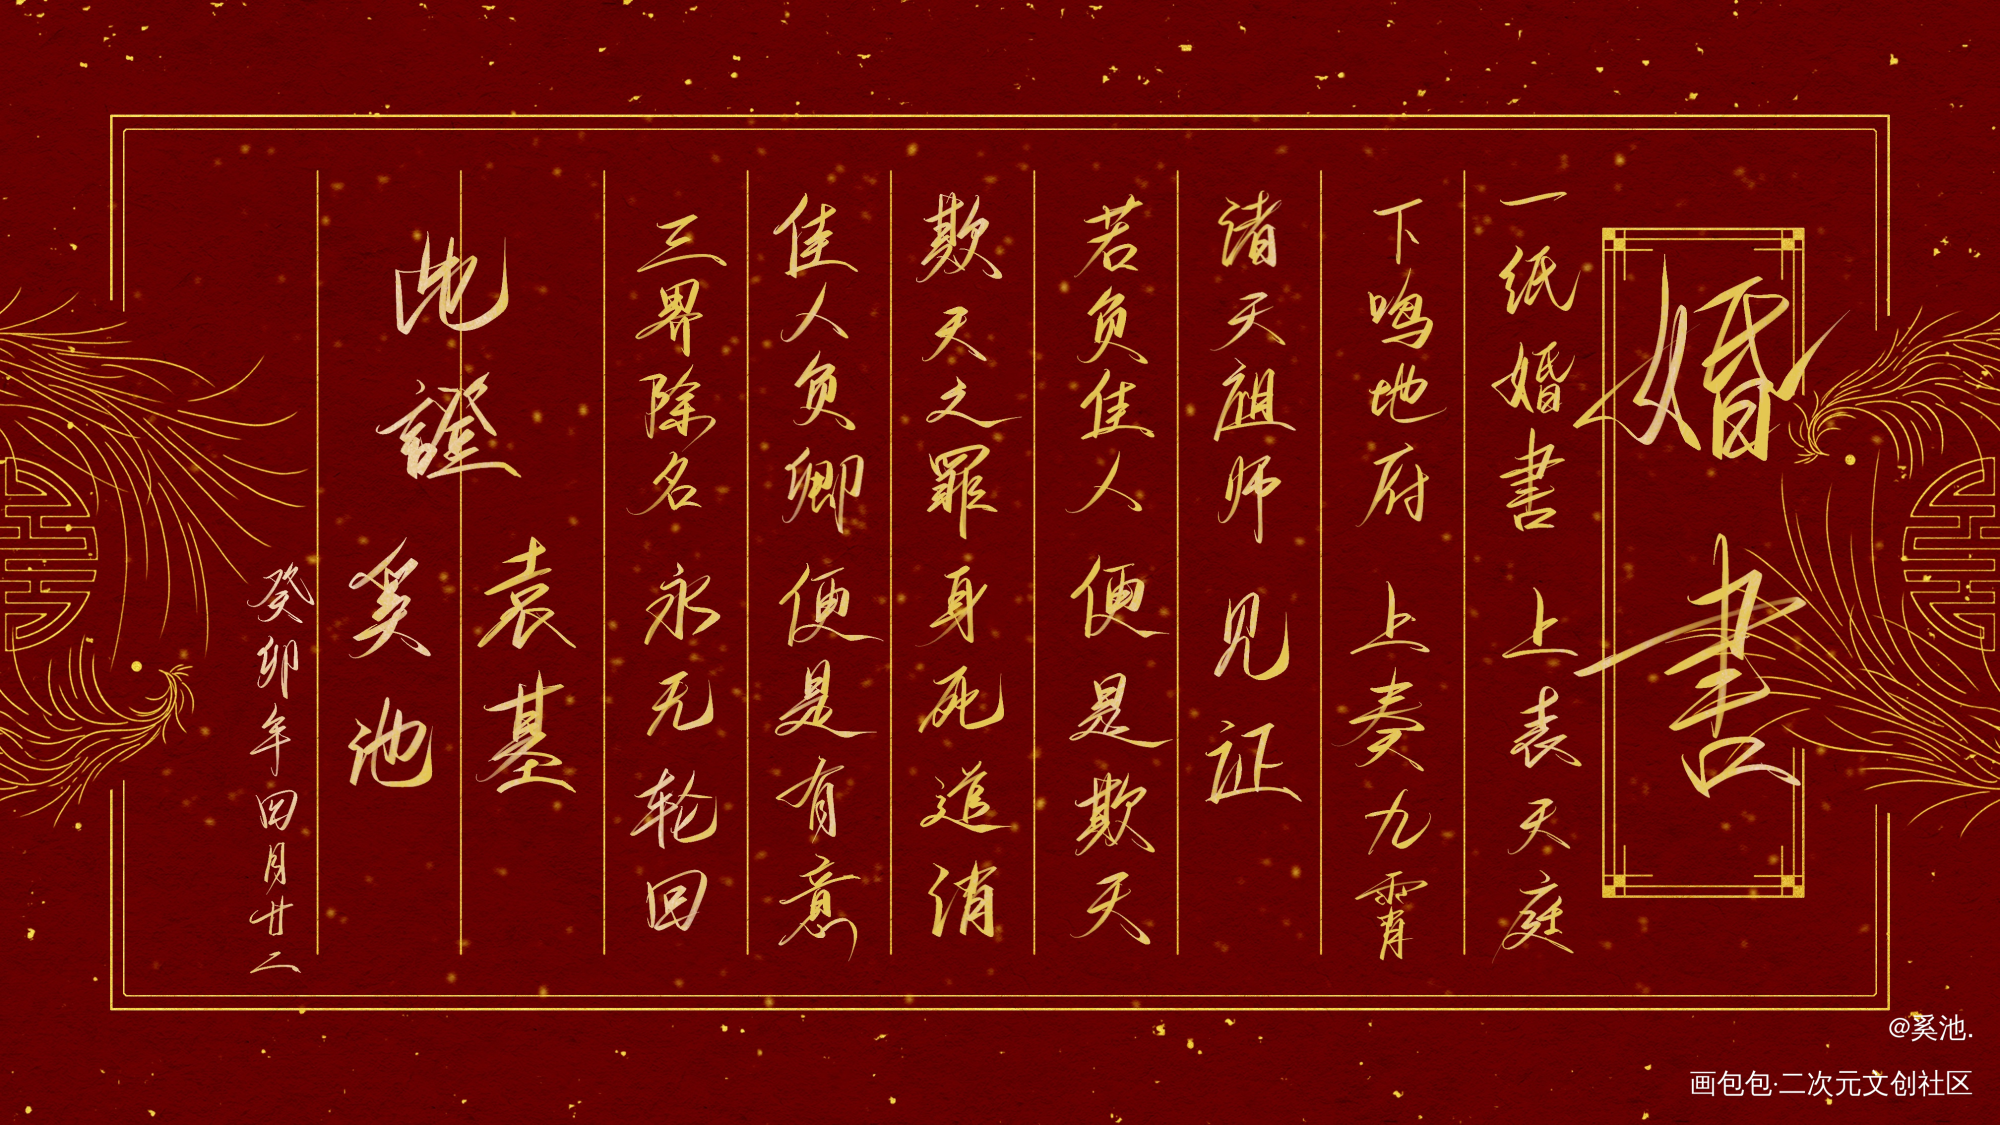 婚書
一纸婚書 上表天庭
下鸣地府 上奏九霄
诸天祖师 见证
若负佳人 便是欺天
欺天之罪 身死道消
佳人负卿 便是有意
三界除名 永无轮回
此證
袁基
奚池
癸卯年 四月廿二
@奚池.
画包包·二次元文创社区